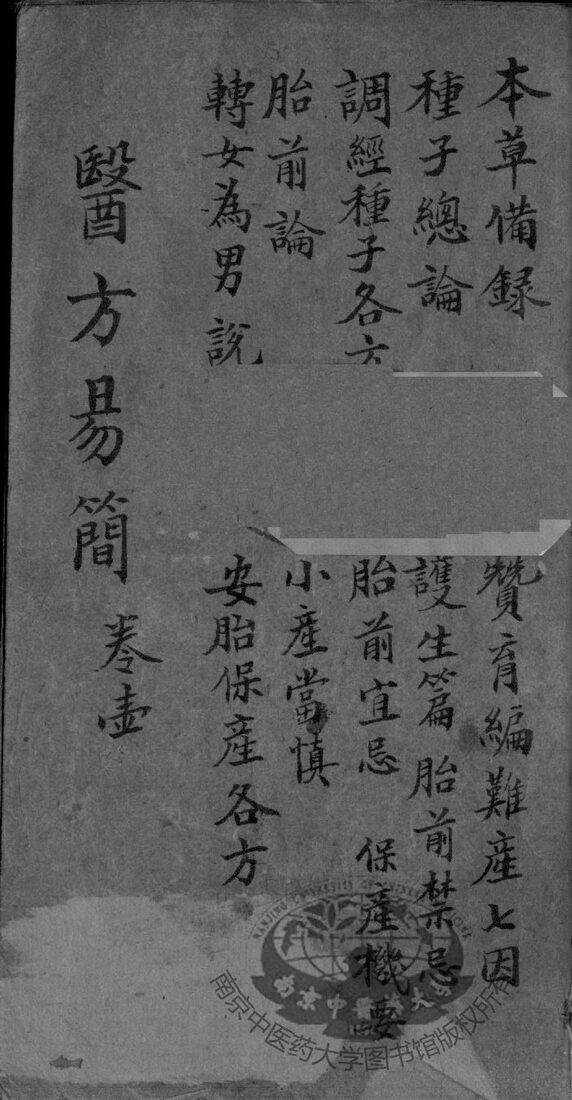 本草備録
種子總論
調經種子各方
胎前論
轉女為男說
贊育編難產七因
護生篇胎前禁忌
胎前宜忌 保產機要
小產當慎
安胎保產各方
醫方易簡 卷壺
南京中医药大学图书馆版权所有
南京中醫藥大學